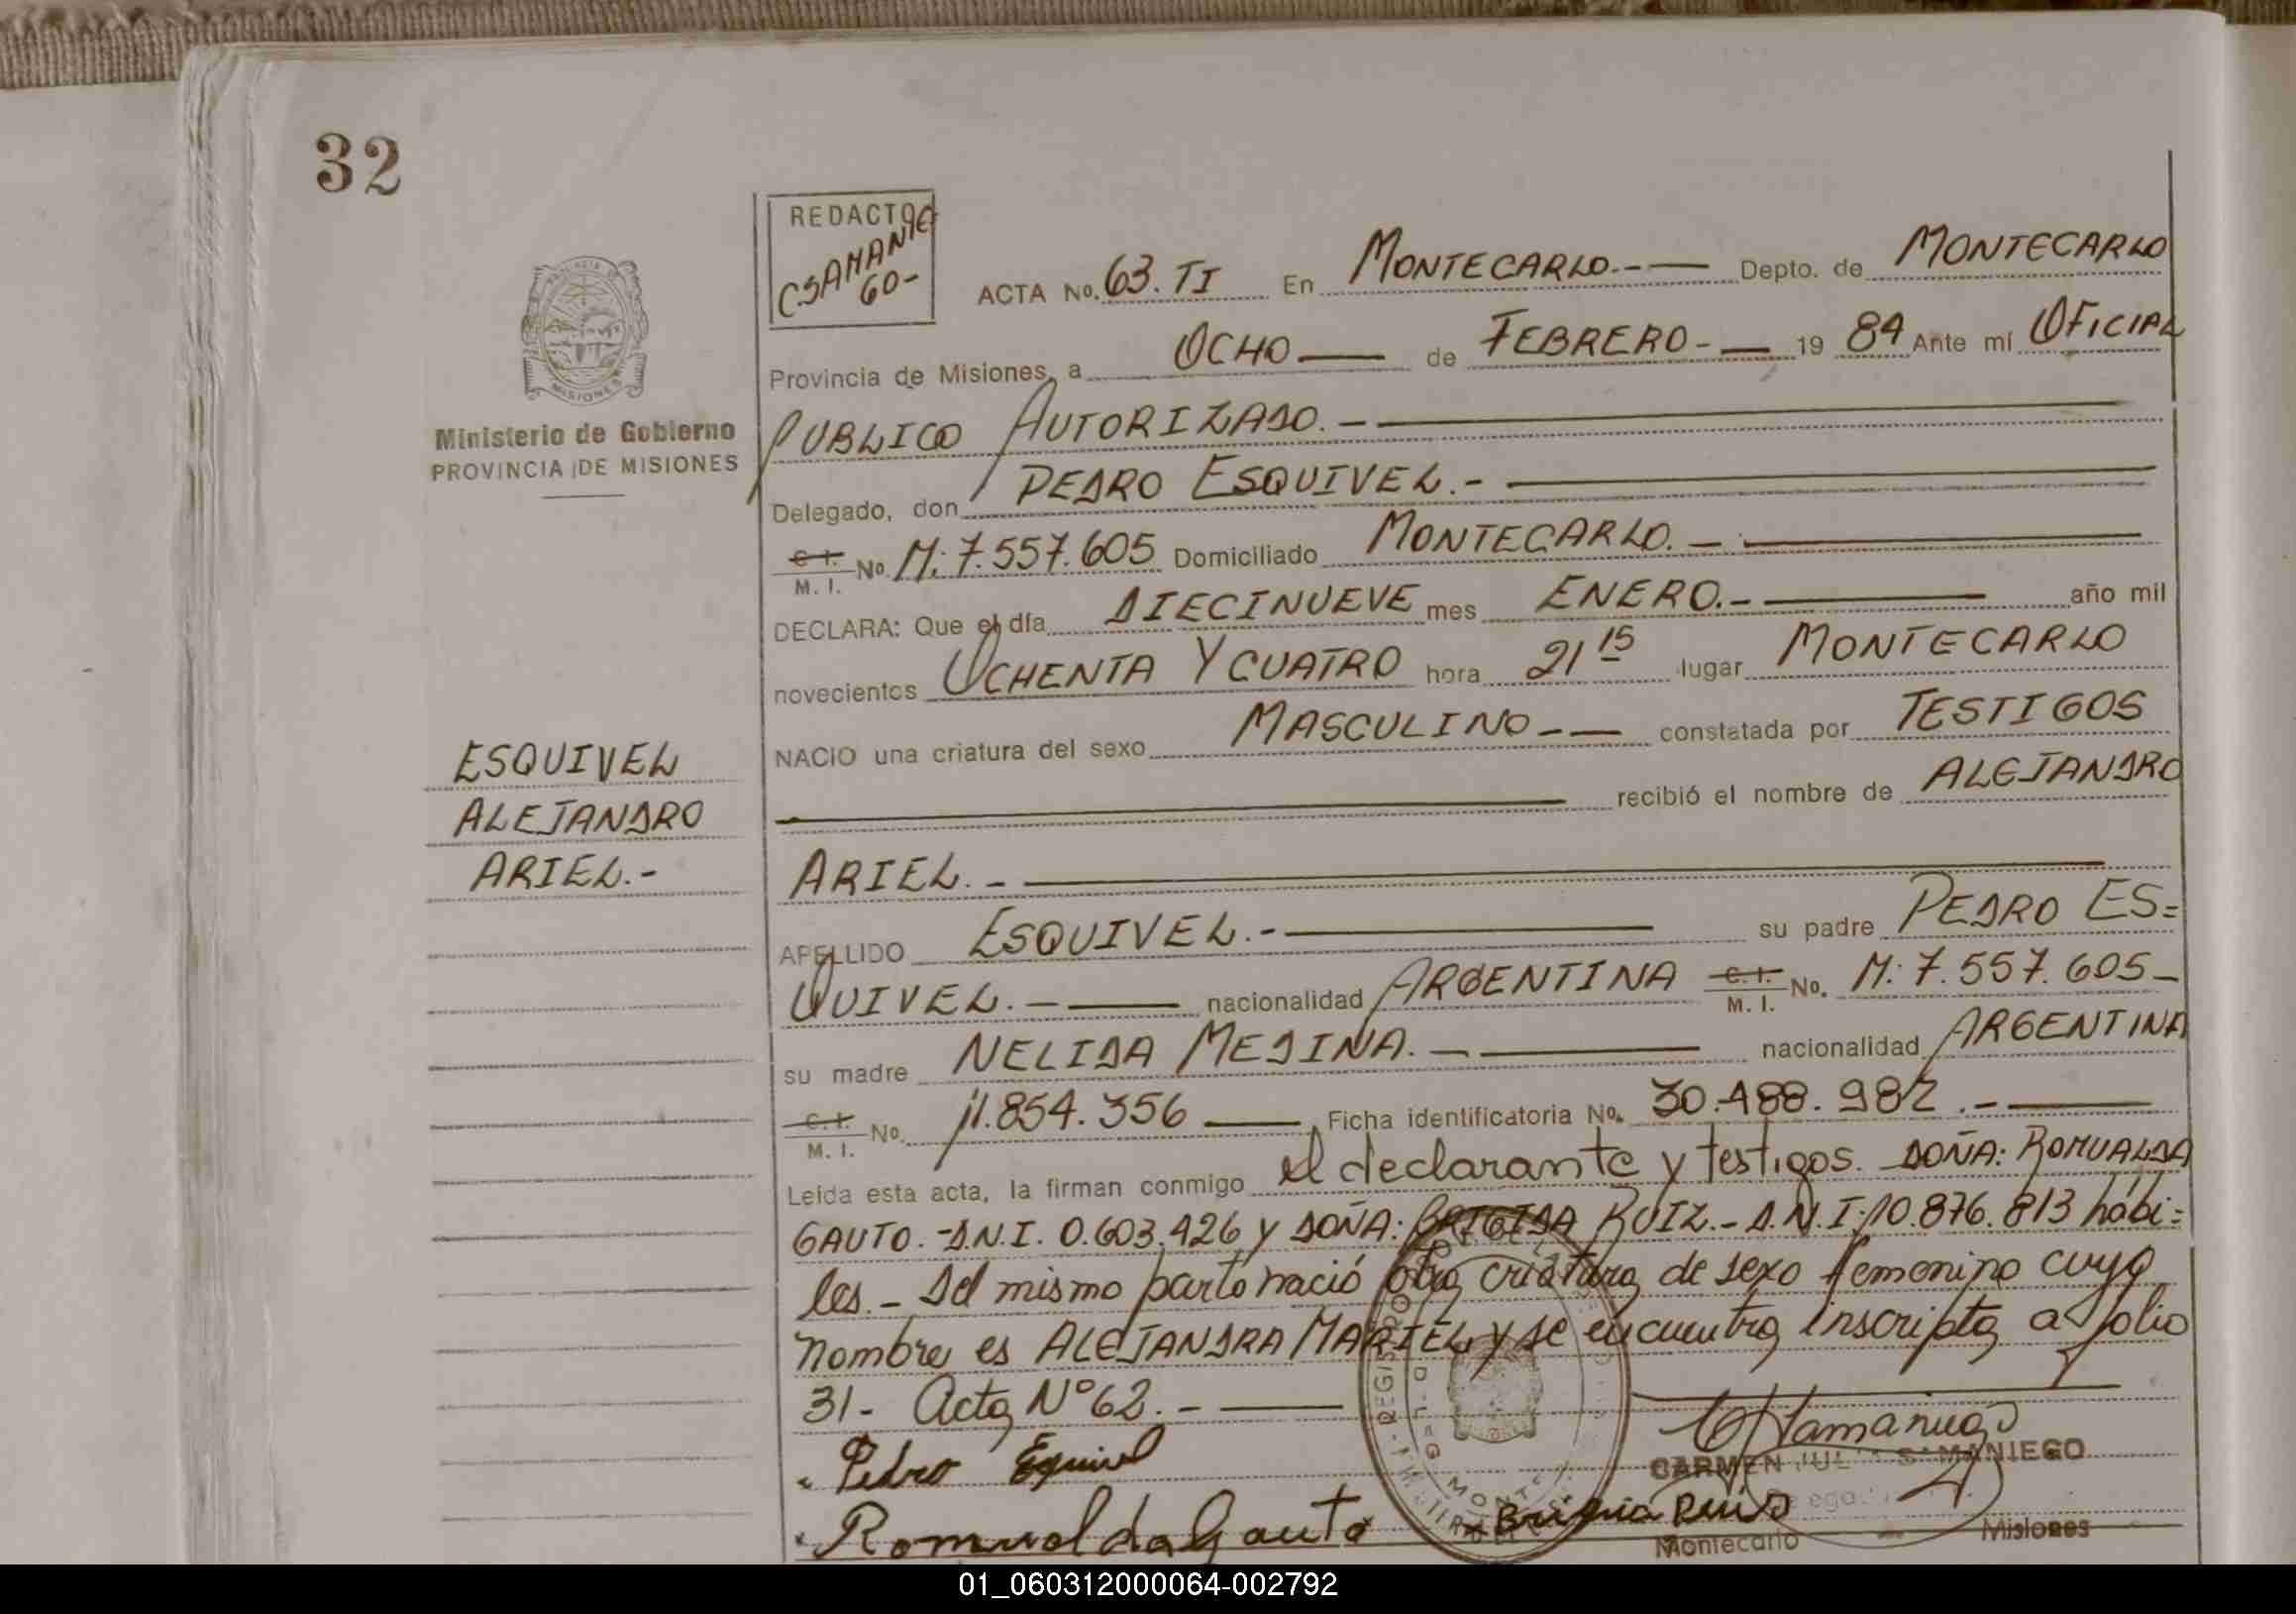 32
REDACTOR
CSAMANIE
60-
ACTA No. 63. TI En MONTECARLO.-— Depto. de MONTECARLO
Provincia de Misiones, a OCHO — de FEBRERO - — 19 84 Ante mí OFICIAL
PUBLICO AUTORIZADO.-
Ministerio de Gobierno
PROVINCIA DE MISIONES
Delegado, don PEDRO ESQUIVEL.-
C.I. M.I. No. M: 7.557.605 Domiciliado MONTECARLO.-
DECLARA: Que el día DIECINUEVE mes ENERO.- año mil
novecientos OCHENTA Y CUATRO hora 21 15 lugar MONTECARLO
NACIO una criatura del sexo MASCULINO - — constatada por TESTIGOS
recibió el nombre de ALEJANDRO
ARIEL.-
ESQUIVEL
ALEJANDRO
ARIEL.-
APELLIDO ESQUIVEL.- su padre PEDRO ES=
QUIVEL.- nacionalidad ARGENTINA C.I. M.I. No. M: 7.557.605-
su madre NELIDA MEDINA.- nacionalidad ARGENTINA
C.I. M.I. No. 11.854.356 — Ficha identificatoria No. 30.488.982.-
Leída esta acta, la firman conmigo el declarante y testigos. DOÑA: ROMUALDA
GAUTO.-D.N.I. 0.603.426 y DOÑA: BRIGIDA RUIZ.- D.N.I: 10.876.813 hábi=
les.- Del mismo parto nació otra criatura de sexo femenino cuyo
nombre es ALEJANDRA MARIEL y se encuentra inscripta a folio
31- Acta N° 62.-
Pedro Esquivel
CARMEN JULIA SAMANIEGO
Romualda Gauto
Brigida Ruis
Montecarlo Misiones
01_060312000064-002792